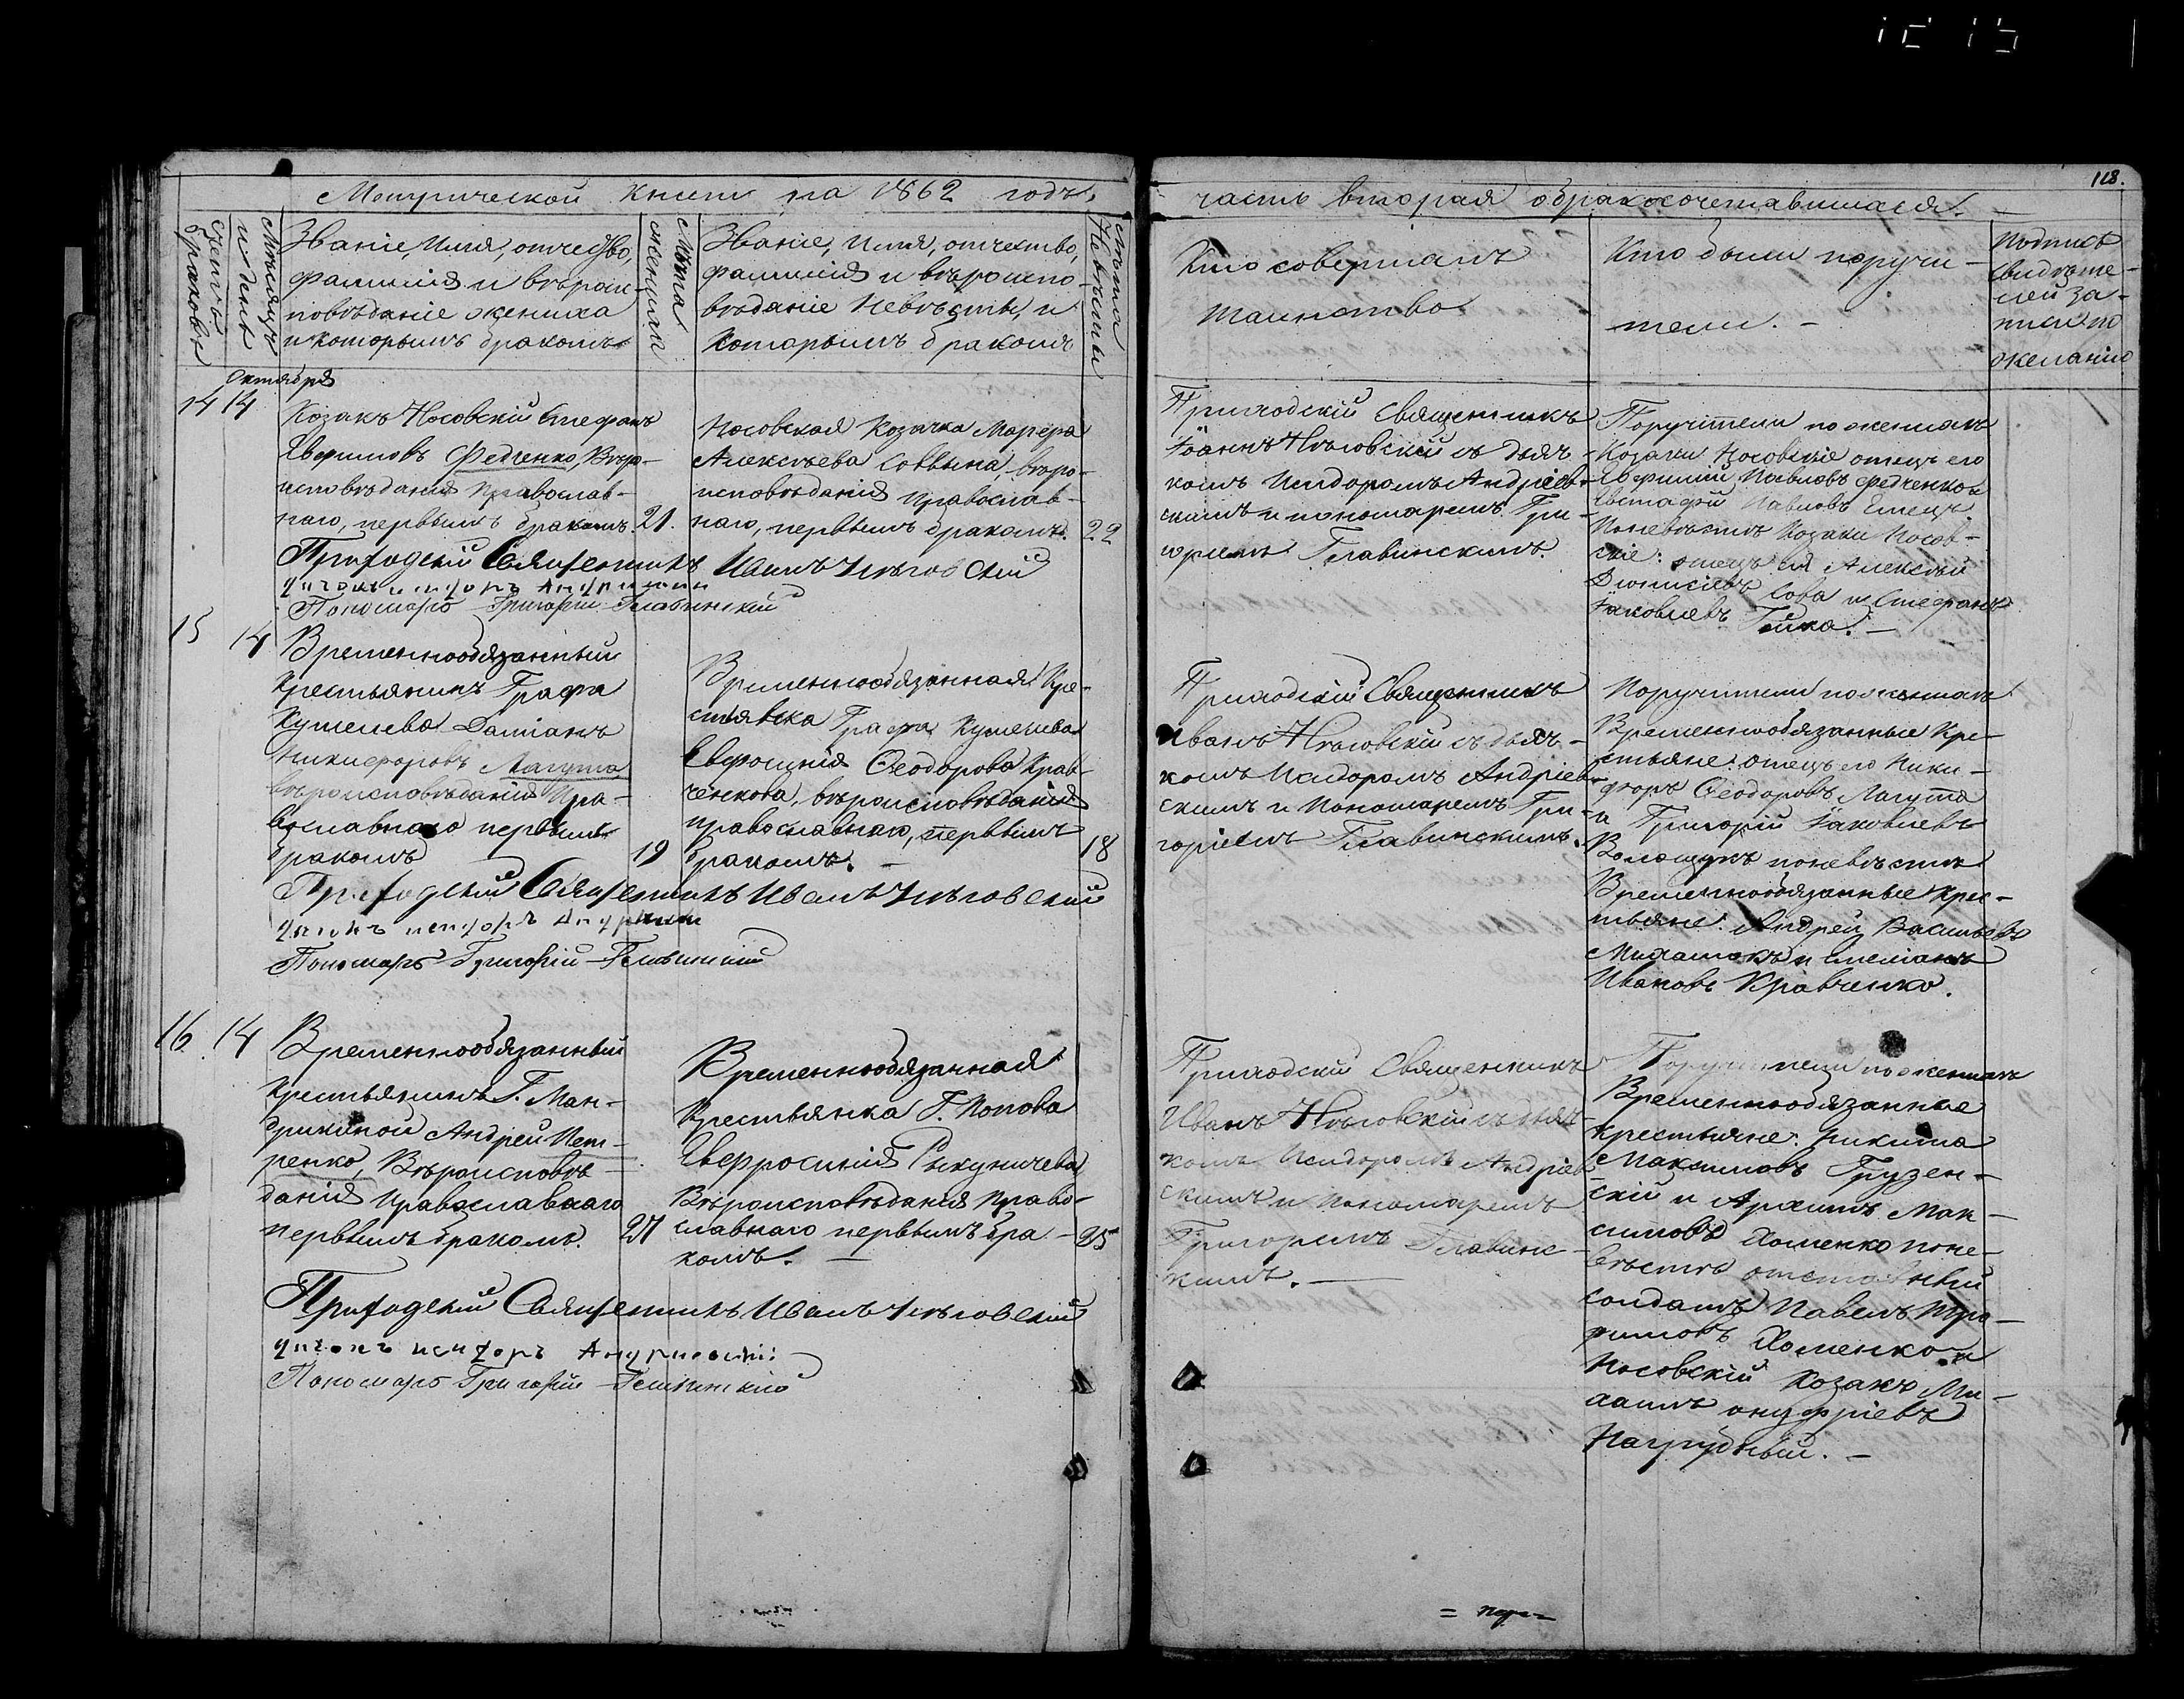 118.
Метрической Книги на 1862 годъ,
часть вторая о бракосочетавшихся.
Счетъ браковъ
Мѣсяцъ и день
Званіе, имя, отчество,
фамилія и вѣроис-
повѣданіе жениха
и которымъ бракомъ
Лѣта жениха
Званіе, имя, отчество,
фамилія и вѣроиспо-
вѣданіе невѣсты, и
которымъ бракомъ
Лѣта Невѣсты
Кто совершалъ
таинство
Кто были поручи-
тели. -
Подпись
свидѣте-
лей за-
писи по
желанію
Октября
14 14
Козакъ Носовскій Стефанъ
Евфимовъ Федченко, Вѣр-
исповѣданія православ-
наго, первымъ бракомъ. 21.
Носовская Козачка Марѳа
Алексѣева Соввина, вѣро-
исповѣданія православ-
наго, первымъ бракомъ. 22
Приходскій Священникъ
Іоаннъ Нѣговскій съ дьяч-
комъ Исидоромъ Андріев-
скимъ и пономаремъ Гри-
горіемъ Главинскимъ.
Поручители по женихѣ
Козаки Носовскіе отецъ его
Евфимій Павловъ Федченко и
Евстафій Павловъ Емецъ
По невѣстѣ Козаки Носов-
скіе: отецъ ея Алексѣй
Діонисіевъ Сова и Стефанъ
Іаковлевъ Гейка. -
Приходскій Священникъ Иванъ Нѣговскій
Дьячокъ Исидоръ Андріевскій
Пономарь Григорій Главинскій
15 14
Временнообязанный
крестьянинъ Графа
Кушелева Даміанъ
Никифоровъ Лагута
вѣроисповѣданія Пра-
вославнаго первымъ
бракомъ 19
Временнообязанная Кре-
стьянка Графа Кушелева
Евфросинія Ѳеодорова Крав-
ченкова, вѣроисповѣданія
православнаго, первымъ
бракомъ. - 18
Приходскій Священникъ
Иванъ Нѣговскій съ дьяч-
комъ Исидоромъ Андріев-
скимъ и Пономаремъ Гри-
горіемъ Главинскимъ.
Поручители по женихѣ
Временнообязанные Кре-
стьяне: отецъ его Ники-
форъ Ѳеодоровъ Лагута
и Григорій Іаковлевъ
Волощукъ по невѣстѣ
Временнообязанные крес-
тьяне: Андрей Васильевъ
и Емеліанъ
Ивановъ Кравченко.
Приходскій Священникъ Иванъ Нѣговскій
Дьячокъ Исидоръ Андріевскій
Пономарь Григорій Главинскій
16. 14
Временнообязанный
крестьянинъ Г. Ман-
дрикиной Андрей Пет-
ренко, Вѣроисповѣ-
данія Православнаго
первымъ бракомъ. 27
Временнообязанная
Крестьянка Г. Попова
Евфросинія
Вѣроисповѣданія Право-
славнаго первымъ бра-
комъ. - 25
Приходскій Священникъ
Иванъ Нѣговскій съ дьяч-
комъ Исидоромъ Андріев-
скимъ и Пономаремъ
Григоріемъ Главинс-
кимъ. -
Поручители по женихѣ
Временнообязанные
крестьяне: Никита
Максимовъ Грузен-
скій и Архипъ Мак-
симовъ Хоменко по не-
вѣстѣ отставный
солдатъ Павелъ Тро-
фимовъ Хоменко и
Носовскій Козакъ Ми-
хаилъ Онуфріевъ
Нагрудный. -
Приходскій Священникъ Иванъ Нѣговскій
Дьячокъ Исидоръ Андріевскій
Пономарь Григорій Главинскій